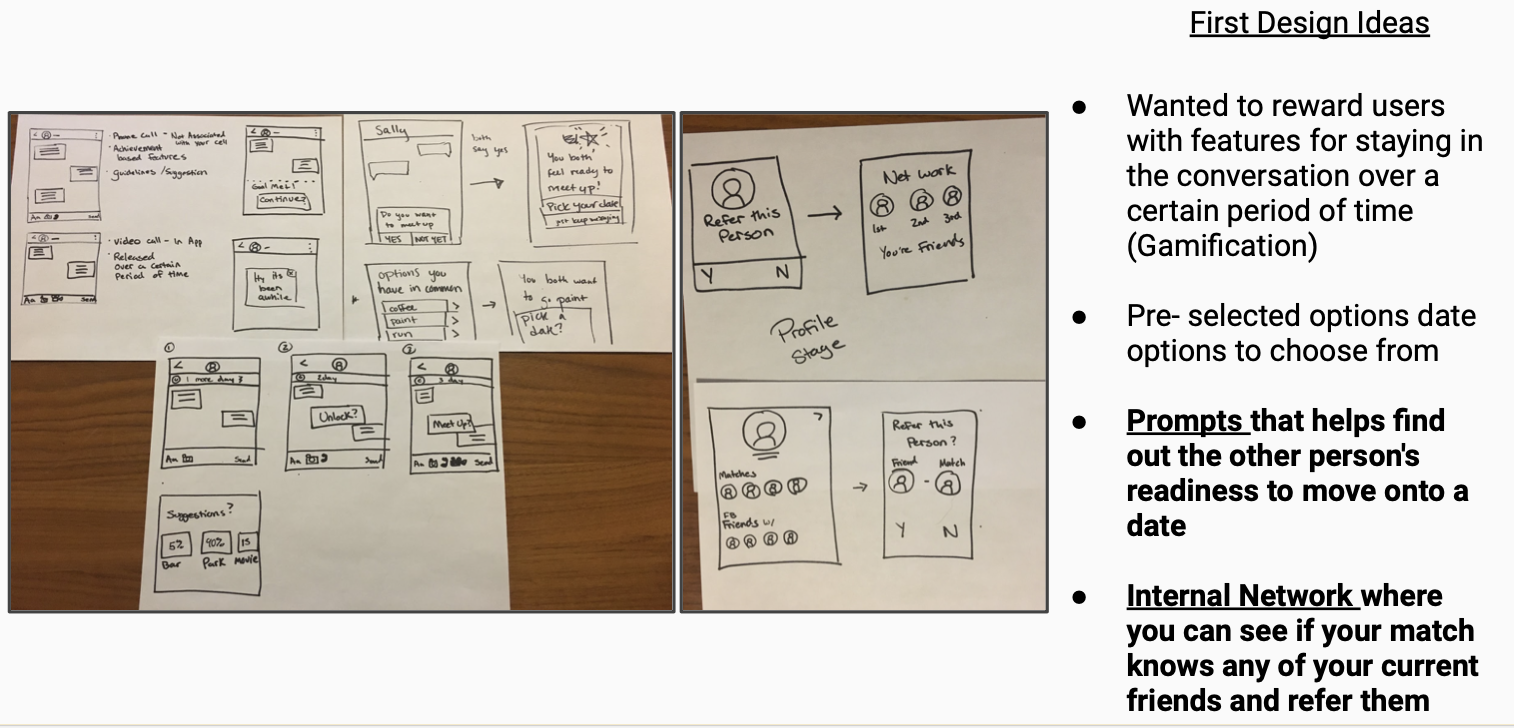 First Design Ideas
● Wanted to reward users
with features for staying in
the conversation over a
certain period of time
(Gamification)
● Pre- selected options date
options to choose from
● Prompts that helps find
out the other person's
readiness to move onto a
date
● Internal Network where
you can see if your match
knows any of your current
friends and refer them
· Phone Call - Not Associated
with your cell
· Achievement
based features
· guidelines /Suggestion
Aa
Send
· Video call - In App
· Released
over a certain
Period of time
Aa
Send
Goal Met!
Continue?
its
been
awhile
Sally
Do you want
to meet up
YES
NOT YET
both
say yes
You both
feel ready to
meet up!
Pick your date
keep messaging
options you
have in common
coffee >
paint >
run >
You both want
to go paint
pick a
①
1 more day
Aa
Send
②
2 day
Unlock?
Aa
Send
3 day
Meet Up?
Aa
Send
Suggestions?
5%
40%
15
Bar
Park
Movie
Refer this
Person
Y
N
Net work
1st
2nd
3rd
You're Friends
Profile
Stage
Matches
FB
Friends w/
Refer this
Person?
Friend
Match
Y
N